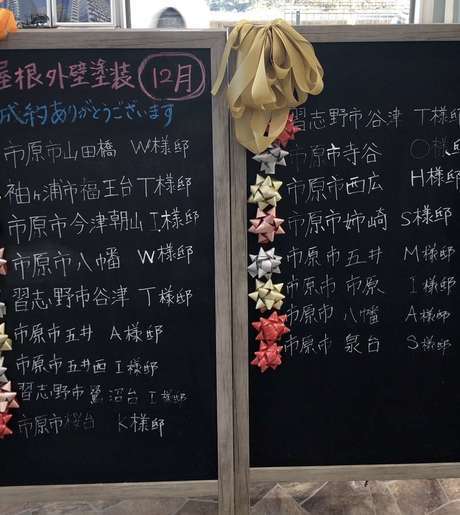 屋根外壁塗装 12月
成約ありがとうございます
市原市山田橋 W様邸
袖ヶ浦市福王台 T様邸
市原市今津朝山 I様邸
市原市八幡 W様邸
習志野市谷津 T様邸
市原市五井 A様邸
市原市五井西 I様邸
習志野市鷺沼台 I様邸
市原市桜台 K様邸
習志野市谷津 T様邸
市原市寺谷 O様邸
市原市西広 H様邸
市原市姉崎 S様邸
市原市五井 M様邸
市原市 市原 I様邸
市原市 八幡 A様邸
市原市 泉台 S様邸